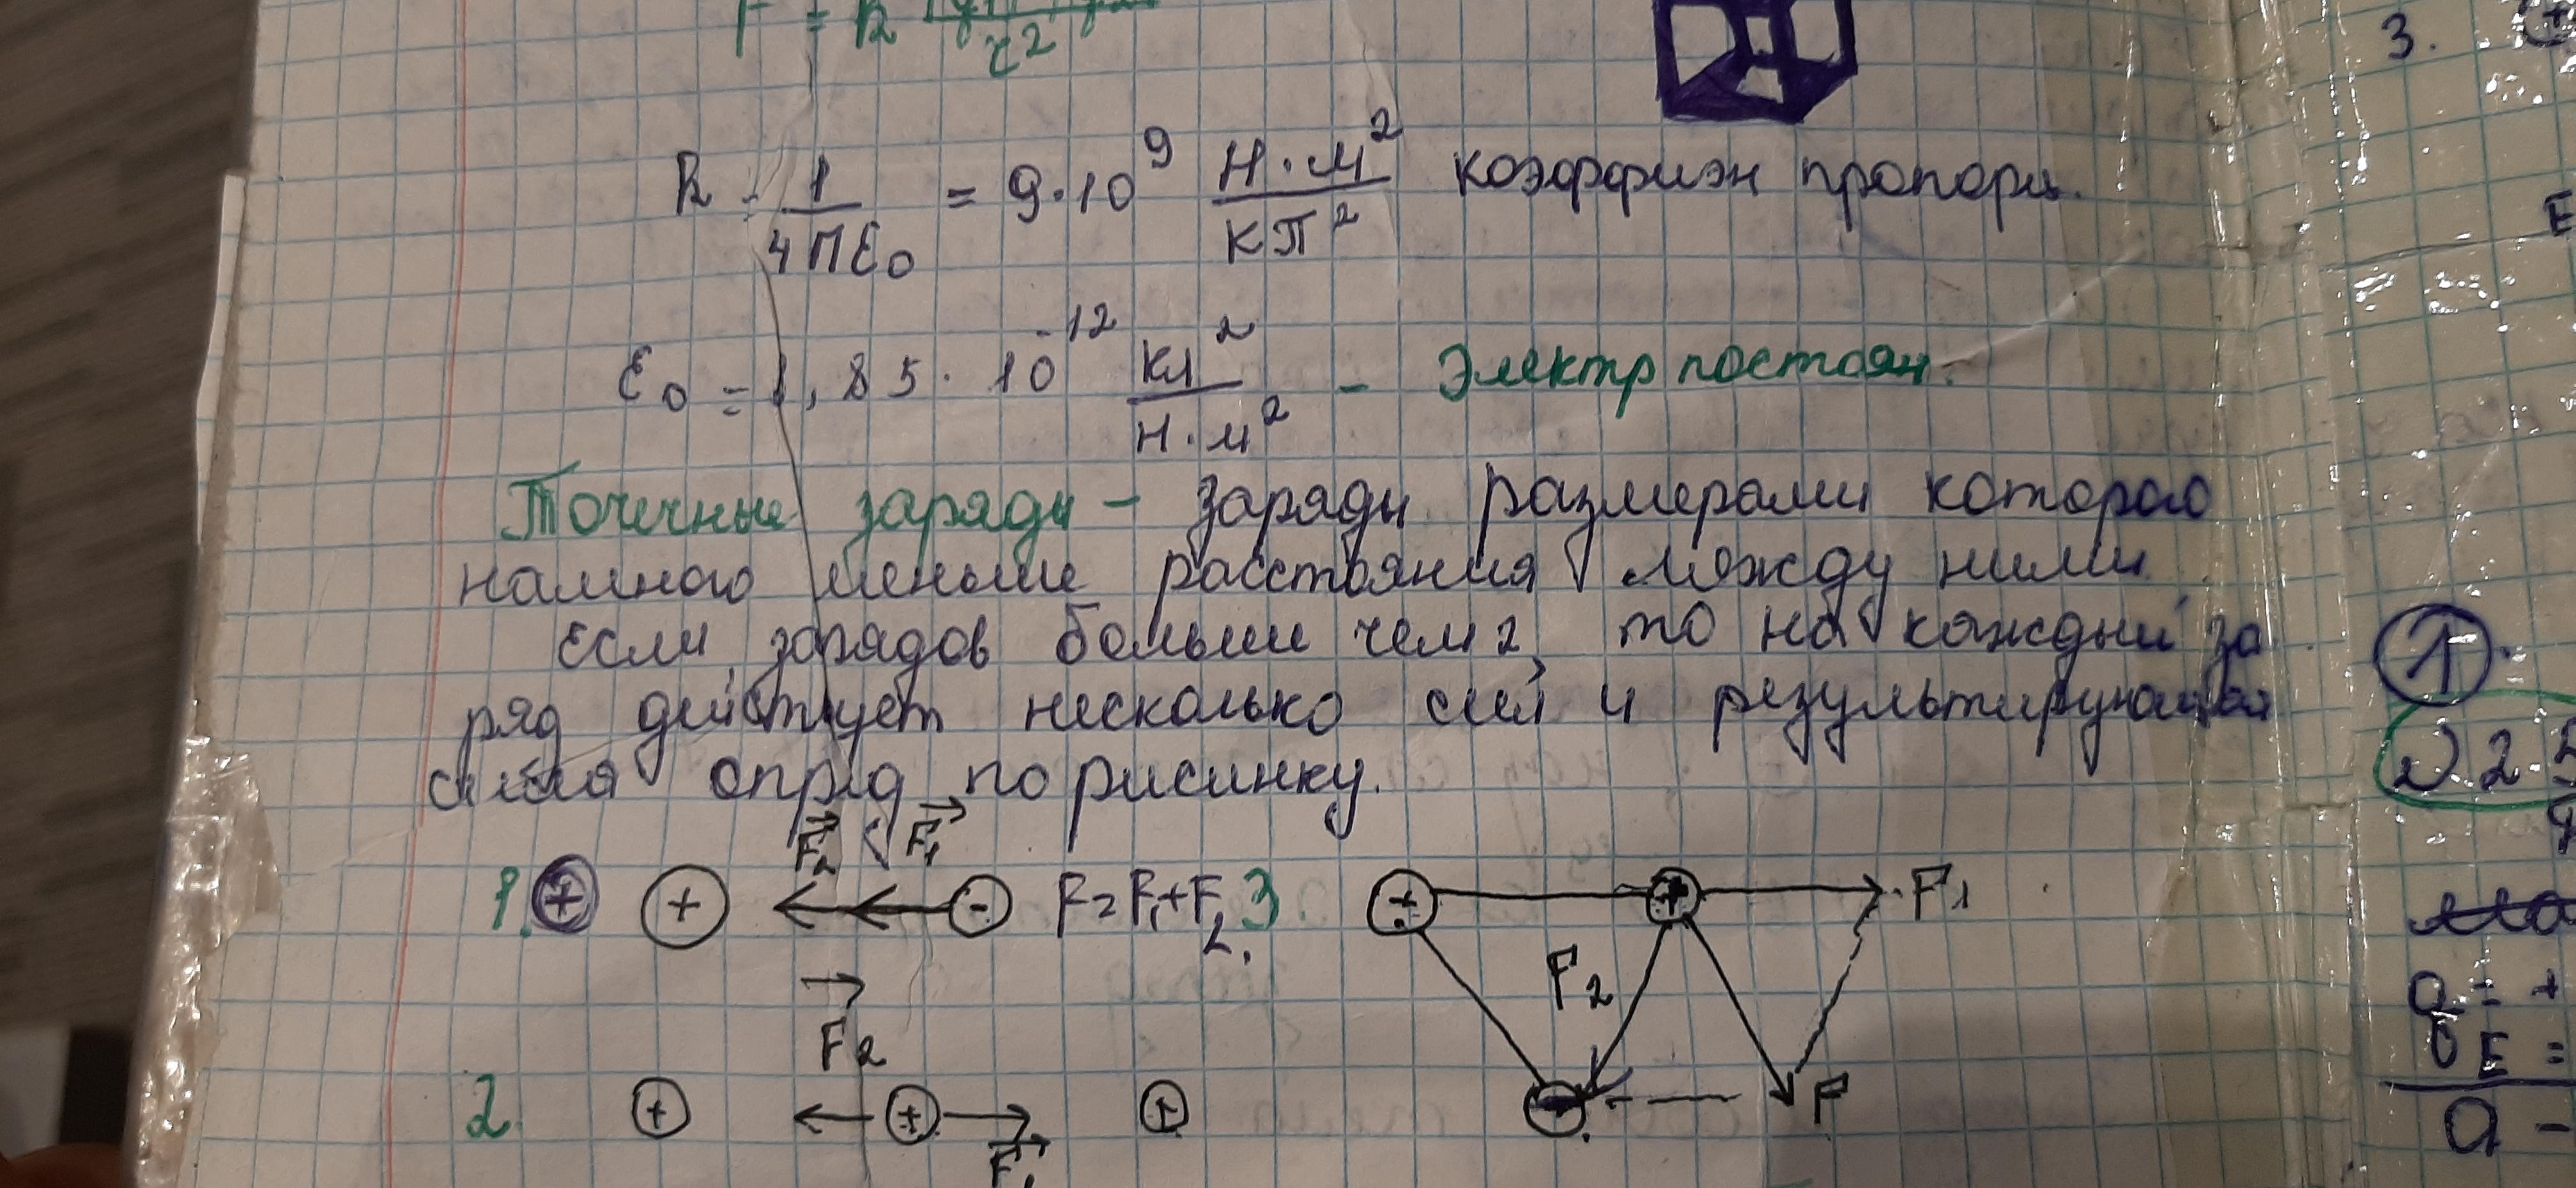 F = k |q1| |q2| / r²
3.
k = 1 / 4πε₀ = 9·10⁹ Н·м² / КЛ² коэффиэн пропорц.
ε₀ = 8,85 · 10⁻¹² Кл² / Н·м² - Электр постоян.
Точечные заряды - заряды размерами которого
намного меньше расстояния между ними
Если зарядов больше чем 2, то на каждый за
ряд действует несколько сил и результирующая
сила опред по рисинку.
1. + + F₂ F₁ - F = F₁+F₂.
2. + F₂ + F₁ +
3. + + F₁ F₂ - F
1.
q = +
E =